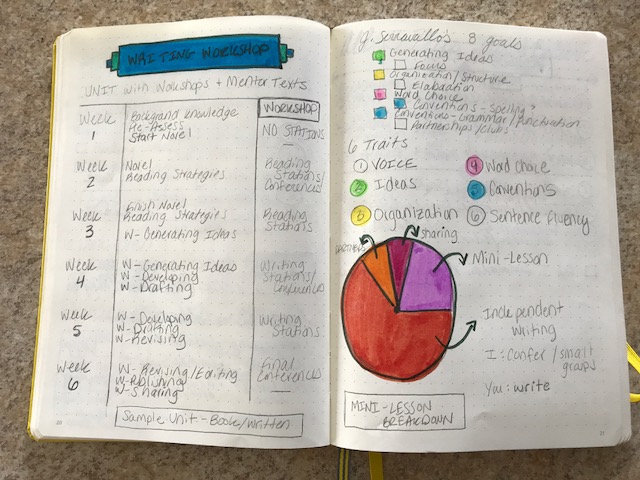 WRITING WORKSHOP
UNIT with Workshops + Mentor Texts
WORKSHOP
Week
1
Background Knowledge
Pre-Assess
Start Novel
NO STATIONS
Week
2
Novel
Reading Strategies
Reading
Stations/
Conferences
Week
3
Finish Novel
Reading Strategies
W- Generating Ideas
Reading
Stations
Week
4
W- Generating Ideas
W- Developing
W- Drafting
Writing
Stations/
Conferences
Week
5
W- Developing
W- Drafting
W- Revising
Writing
Stations
Week
6
W- Revising/Editing
W-Publishing
W- Sharing
Final
Conferences
Sample Unit - Book/Written
J. Serravallo's 8 goals
Generating Ideas
Focus
Organization/Structure
Elaboration
Word Choice
Conventions - Spelling
Conventions - Grammar/Punctuation
Partnerships/Clubs
6 Traits
1 VOICE
4 Word choice
2 Ideas
5 Conventions
3 Organization
6 Sentence fluency
partners
sharing
Mini-Lesson
Independent
Writing
I: Confer/small
groups
You: write
MINI-LESSON
BREAKDOWN